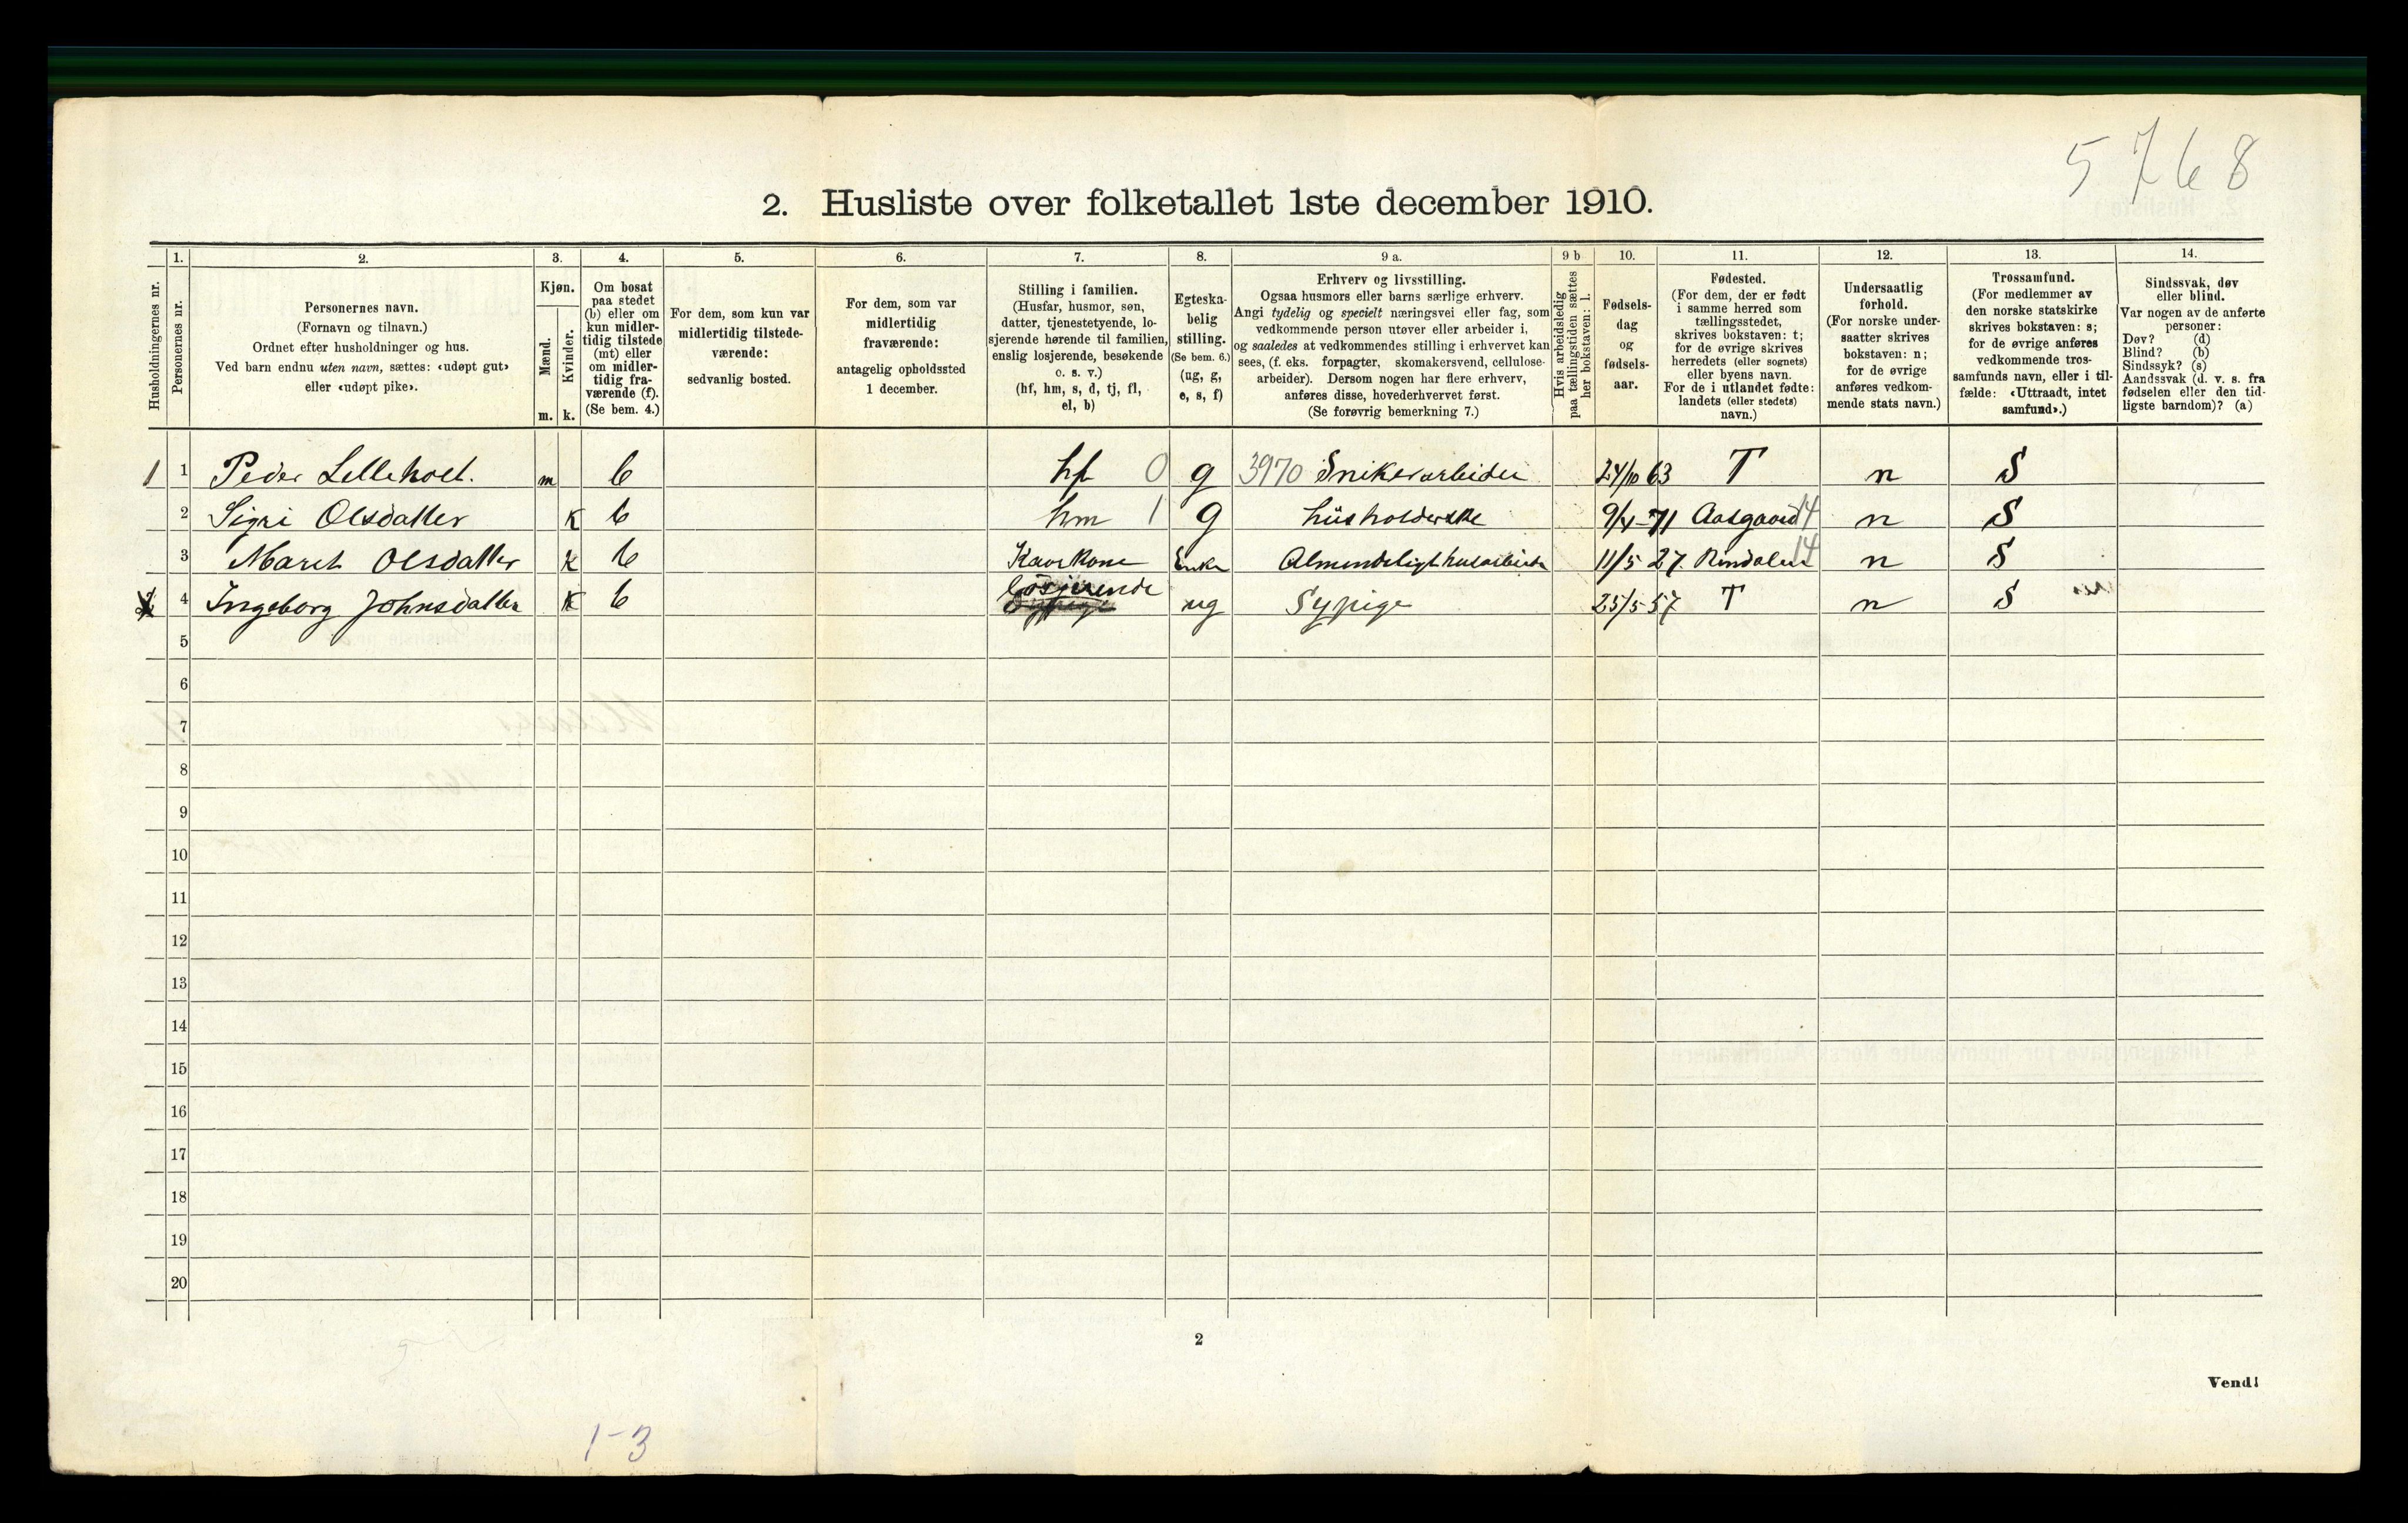 5768
2. Husliste over folketallet 1ste december 1910.
Husholdningernes nr.
1.
Personernes nr.
2.
Personernes navn.
(Fornavn og tilnavn.)
Ordnet efter husholdninger og hus.
Ved barn endnu uten navn, sættes: «udøpt gut»
eller «udøpt pike».
3.
Kjøn.
Mænd.
m.
Kvinder.
k.
4.
Om bosat
paa stedet
(b) eller om
kun midler-
tidig tilstede
(mt) eller
om midler-
tidig fra-
værende (f).
(Se bem. 4.)
5.
For dem, som kun var
midlertidig tilstede-
værende:
sedvanlig bosted.
6.
For dem, som var
midlertidig
fraværende:
antagelig opholdssted
1 december.
7.
Stilling i familien.
(Husfar, husmor, søn,
datter, tjenestetyende, lo-
sjerende hørende til familien,
enslig losjerende, besøkende
o. s. v.)
(hf, hm, s, d, tj, fl,
el, b)
8.
Egteska-
belig
stilling.
(Se bem. 6.)
(ug, g,
e, s, f)
9 a.
Erhverv og livsstilling.
Ogsaa husmors eller barns særlige erhverv.
Angi tydelig og specielt næringsvei eller fag, som
vedkommende person utøver eller arbeider i,
og saaledes at vedkommendes stilling i erhvervet kan
sees, (f. eks. forpagter, skomakersvend, cellulose-
arbeider). Dersom nogen har flere erhverv,
anføres disse, hovederhvervet først.
(Se forøvrig bemerkning 7.)
9 b
Hvis arbeidsledig
paa tællingstiden sættes
her bokstaven: l.
10.
Fødsels-
dag
og
fødsels-
aar.
11.
Fødested.
(For dem, der er født
i samme herred som
tællingsstedet,
skrives bokstaven: t;
for de øvrige skrives
herredets (eller sognets)
eller byens navn.
For de i utlandet fødte:
landets (eller stedets)
navn.)
12.
Undersaatlig
forhold.
(For norske under-
saatter skrives
bokstaven: n;
for de øvrige
anføres vedkom-
mende stats navn.)
13.
Trossamfund.
(For medlemmer av
den norske statskirke
skrives bokstaven: s;
for de øvrige anføres
vedkommende tros-
samfunds navn, eller i til-
fælde: «Uttraadt, intet
samfund».)
14.
Sindssvak, døv
eller blind.
Var nogen av de anførte
personer:
Døv? (d)
Blind? (b)
Sindssyk? (s)
Aandssvak (d. v. s. fra
fødselen eller den tid-
ligste barndom)? (a)
1 1 Peder Lilleholt. m b hf 0 g 3970 Snikerarbeider 24/10 63 T n S
2 Sigri Olsdatter K b hm 1 g husholderske 9/4-71 Aasgaard 14 n S
3 Maret Olsdatter k b Kaarkone Enke Almindeligt husarbeide 11/5 27. Rindalen 14 n S
4 Ingeborg Johnsdatter K b losjerende ug Sypige 25/5-57 T n S
5
6
7
8
9
10
11
12
13
14
15
16
17
18
19
20
2
Vend!
1-3